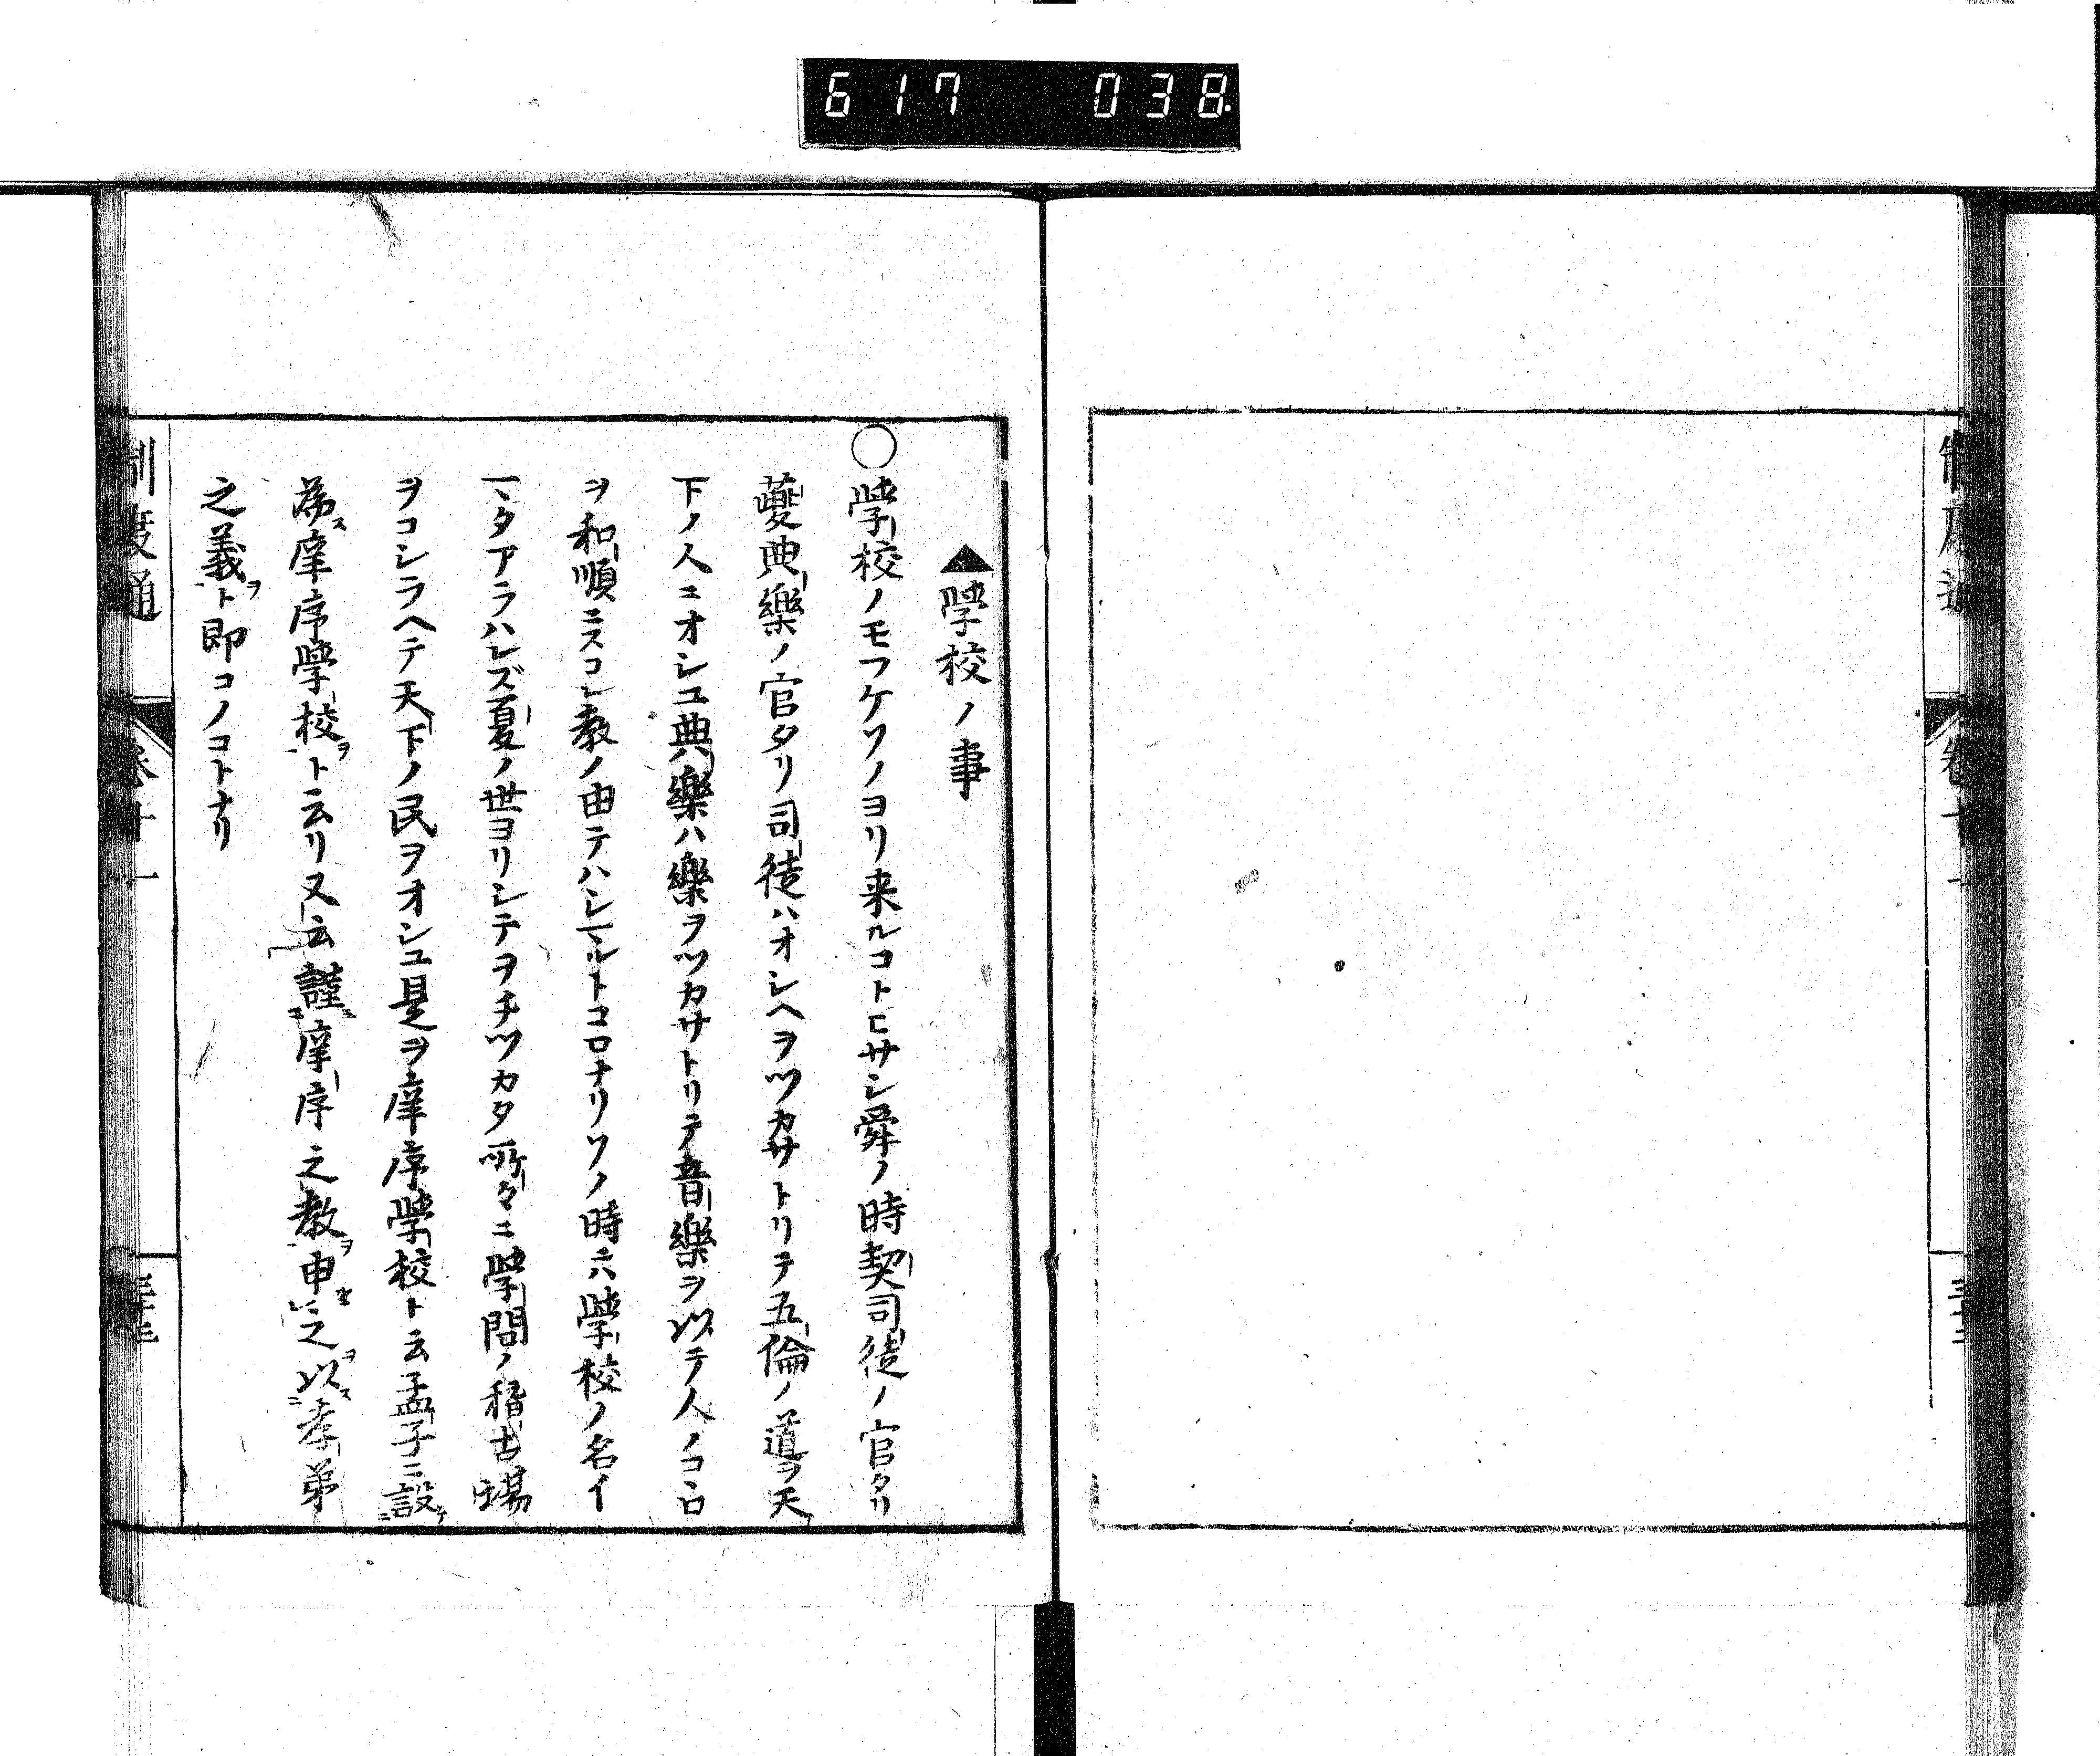 617 038
制度通
卷十一
▲學校ノ事
○學校ノモフケソノヨリ来ルコトヒサシ舜ノ時契司徒ノ官タリ
夔典樂ノ官タリ司徒ハオシヘヲツカサトリテ五倫ノ道ヲ天
下ノ人ニオシユ典樂ハ樂ヲツカサトリテ音樂ヲ以テ人ノコヽロ
ヲ和順ニスコレ教ノ由テハシマルトコロナリソノ時ハ學校ノ名イ
マタアラハレズ夏ノ世ヨリシテヲチツカタ所々ニ學問ノ稽古場
ヲコシラヘテ天下ノ民ヲオシユ是ヲ庠序學校ト云孟子ニ設
為ス庠序學校ヲト云リ又云謹庠序之教ヲ申之以孝弟
之義ヲト即コノコトナリ
制度通
卷十一